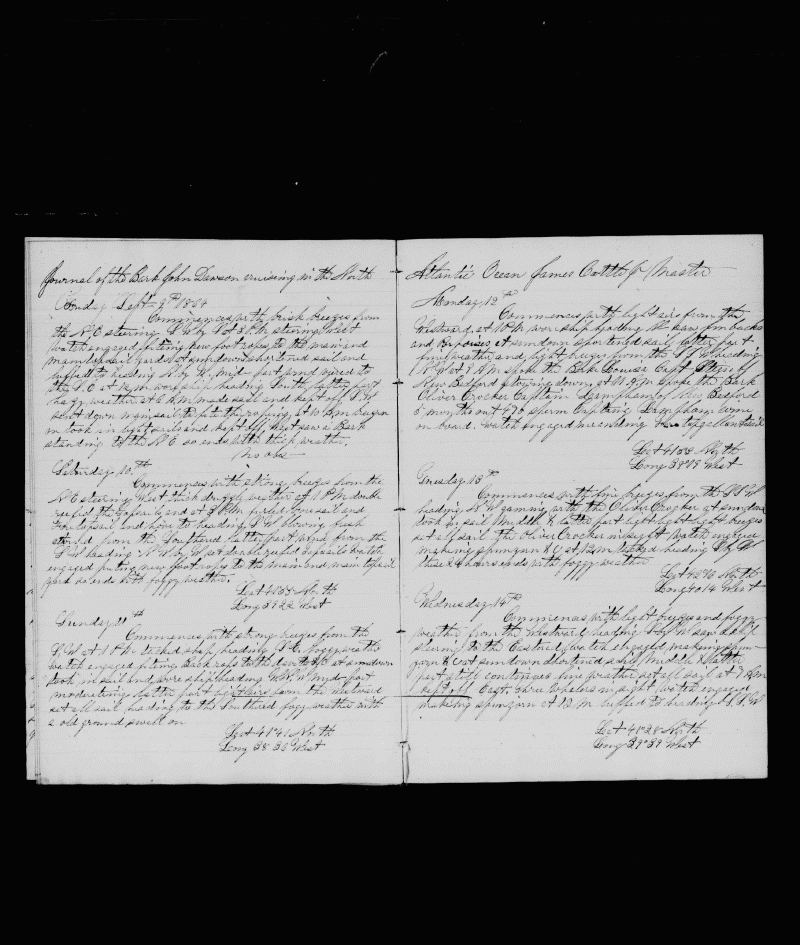 Journal of the Bark John Dawson cruising in the North
Sept 9th 1884
Commences with brisk breezes from
the N E steering S W by W at 3 P.M. steering West
watch engaged fiting new foot ropes to the main and
main topsail yards at sundown shortened sail and
luffed to heading N by W. mid part wind vered to
the S. E at 12 M wore ship heading South latter part
hazy weather at 6 A.M. made sail and kept off S. W.
sent down mainsail at 10 A.M. began
to took in light sails and kept off West saw a Bark
standing to the N E so ends with thick weather.
no obs
Saturday 10th
Commences with strong breezes from the
N E steering West thick drizzly weather at 1 P.M. double
reefed the topsails and at 3 P.M. furled foresail and
foretopsail and hove to heading S. W blowing fresh
from the Southerd latter part wind from the
S W heading N. W. by W set double reefed topsails watch
engaged puting new foot ropes to the main and main topsail
yards so ends with foggy weather.
Lat 41 55 North
Long 39 22 West
Sunday 11th
Commences with strong breezes from the
S. W at 1 P.M. tacked ship heading S. E. foggy weather
watch engaged fiting Back rops to the at sundown
took in sail and wore ship heading W.N.W. Mid part
moderating latter part light airs from the Westward
set all sail heading to the Southerd fogy weather with
a old ground swell on
Lat 41 41 North
Long 38 35 West
Atlantic Ocean James Cottle Jr Master
Monday 12th
Commences with light airs from the
Westward, at 1 P.M. wore ship heading saw finbacks
and Porpoises at sundown shortened sail latter part
fine weather and light breezes from the S S W heading
N. W at 7 A.M. spoke the Bark Louisa Capt
New Bedford at 11 A.M. spoke the Bark
Oliver Crocker Captain Lampham of New Bedford
5 months out 70 sperm Captain Lampham come
on board. Watch engaged mending the
Lat 41 53 North
Long 39 09 West
Tuesday 13th
Commences with fine breezes from the S S W
heading N. W gaming with the Oliver Crocker at sundown
took in sail Middle & latter part light light light breezes
set all sail the Oliver Crocker in sight watch engaged
making spunyarn & C at 12 M tacked heading S by W
these 24 hours ends with foggy weather
Lat 42 16 North
Long 40 14 West
Wednesday 14th
Commences with light breezes and foggy
weather from the Westward heading S by W saw a ship
steering to the Eastward watch engaged making spun-
yarn & C at sundown shortened sail Middle & latter
part still continues fine weather set all sail at 7 A.M
kept off East, three whalers in sight watch engaged
making spunyarn at 12 M luffed to heading S. S. W
Lat 41 28 North
Long 39 39 West